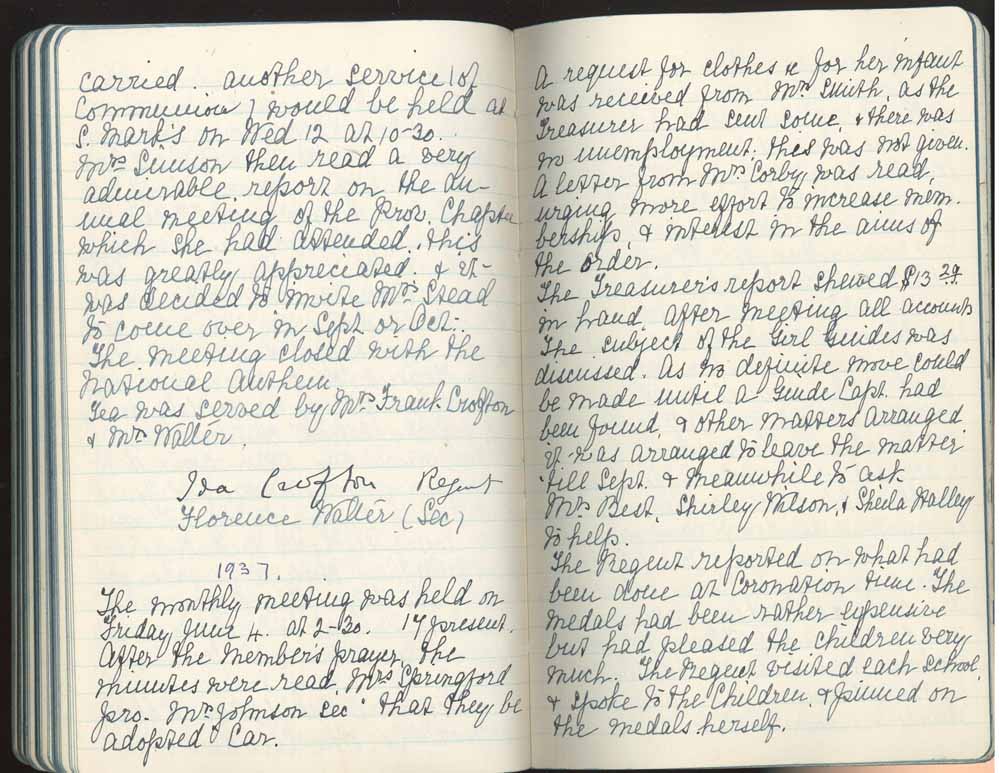 carried. another service (of
Communion) would be held at
S. Mark's on Wed 12 at 10-30.
Mrs Simson then read a very
admirable report on the an-
nual meeting of the Prov. Chapter
which she had attended. this
was greatly appreciated. & it
was decided to invite Mrs Stead
to come over in Sept or Oct:
The meeting closed with the
National Anthem
Tea was served by Mrs Frank Crofton
& Mrs Walter.
Ida Crofton Regent
Florence Walter (Sec)
1937.
The monthly meeting was held on
Friday June 4. at 2-30. 17 present.
After the Members prayer, the
minutes were read, Mrs Springford
pro. Mrs Johnson sec that they be
adopted Car.
A request for clothes & for her infant
was received from Mrs Smith, as the
Treasurer had sent some, & there was
no unemployment. this was not given.
A letter from Mrs Corby was read,
urging more effort to increase mem-
bership, & interest in the aims of
the order.
The Treasurer's report shewed $13 29
in hand, after meeting all accounts
The subject of the Girl Guides was
discussed. As no definite move could
be made until a Guide Capt. had
been found, & other matters arranged
it was arranged to leave the matter
till Sept. & meanwhile to ask
Mrs Best, Shirley Wilson, & Sheila Halley
to help.
The Regent reported on what had
been done at Coronation time. The
medals had been rather expensive
but had pleased the children very
much. The Regent visited each school,
& spoke to the Children, & pinned on
the medals herself.